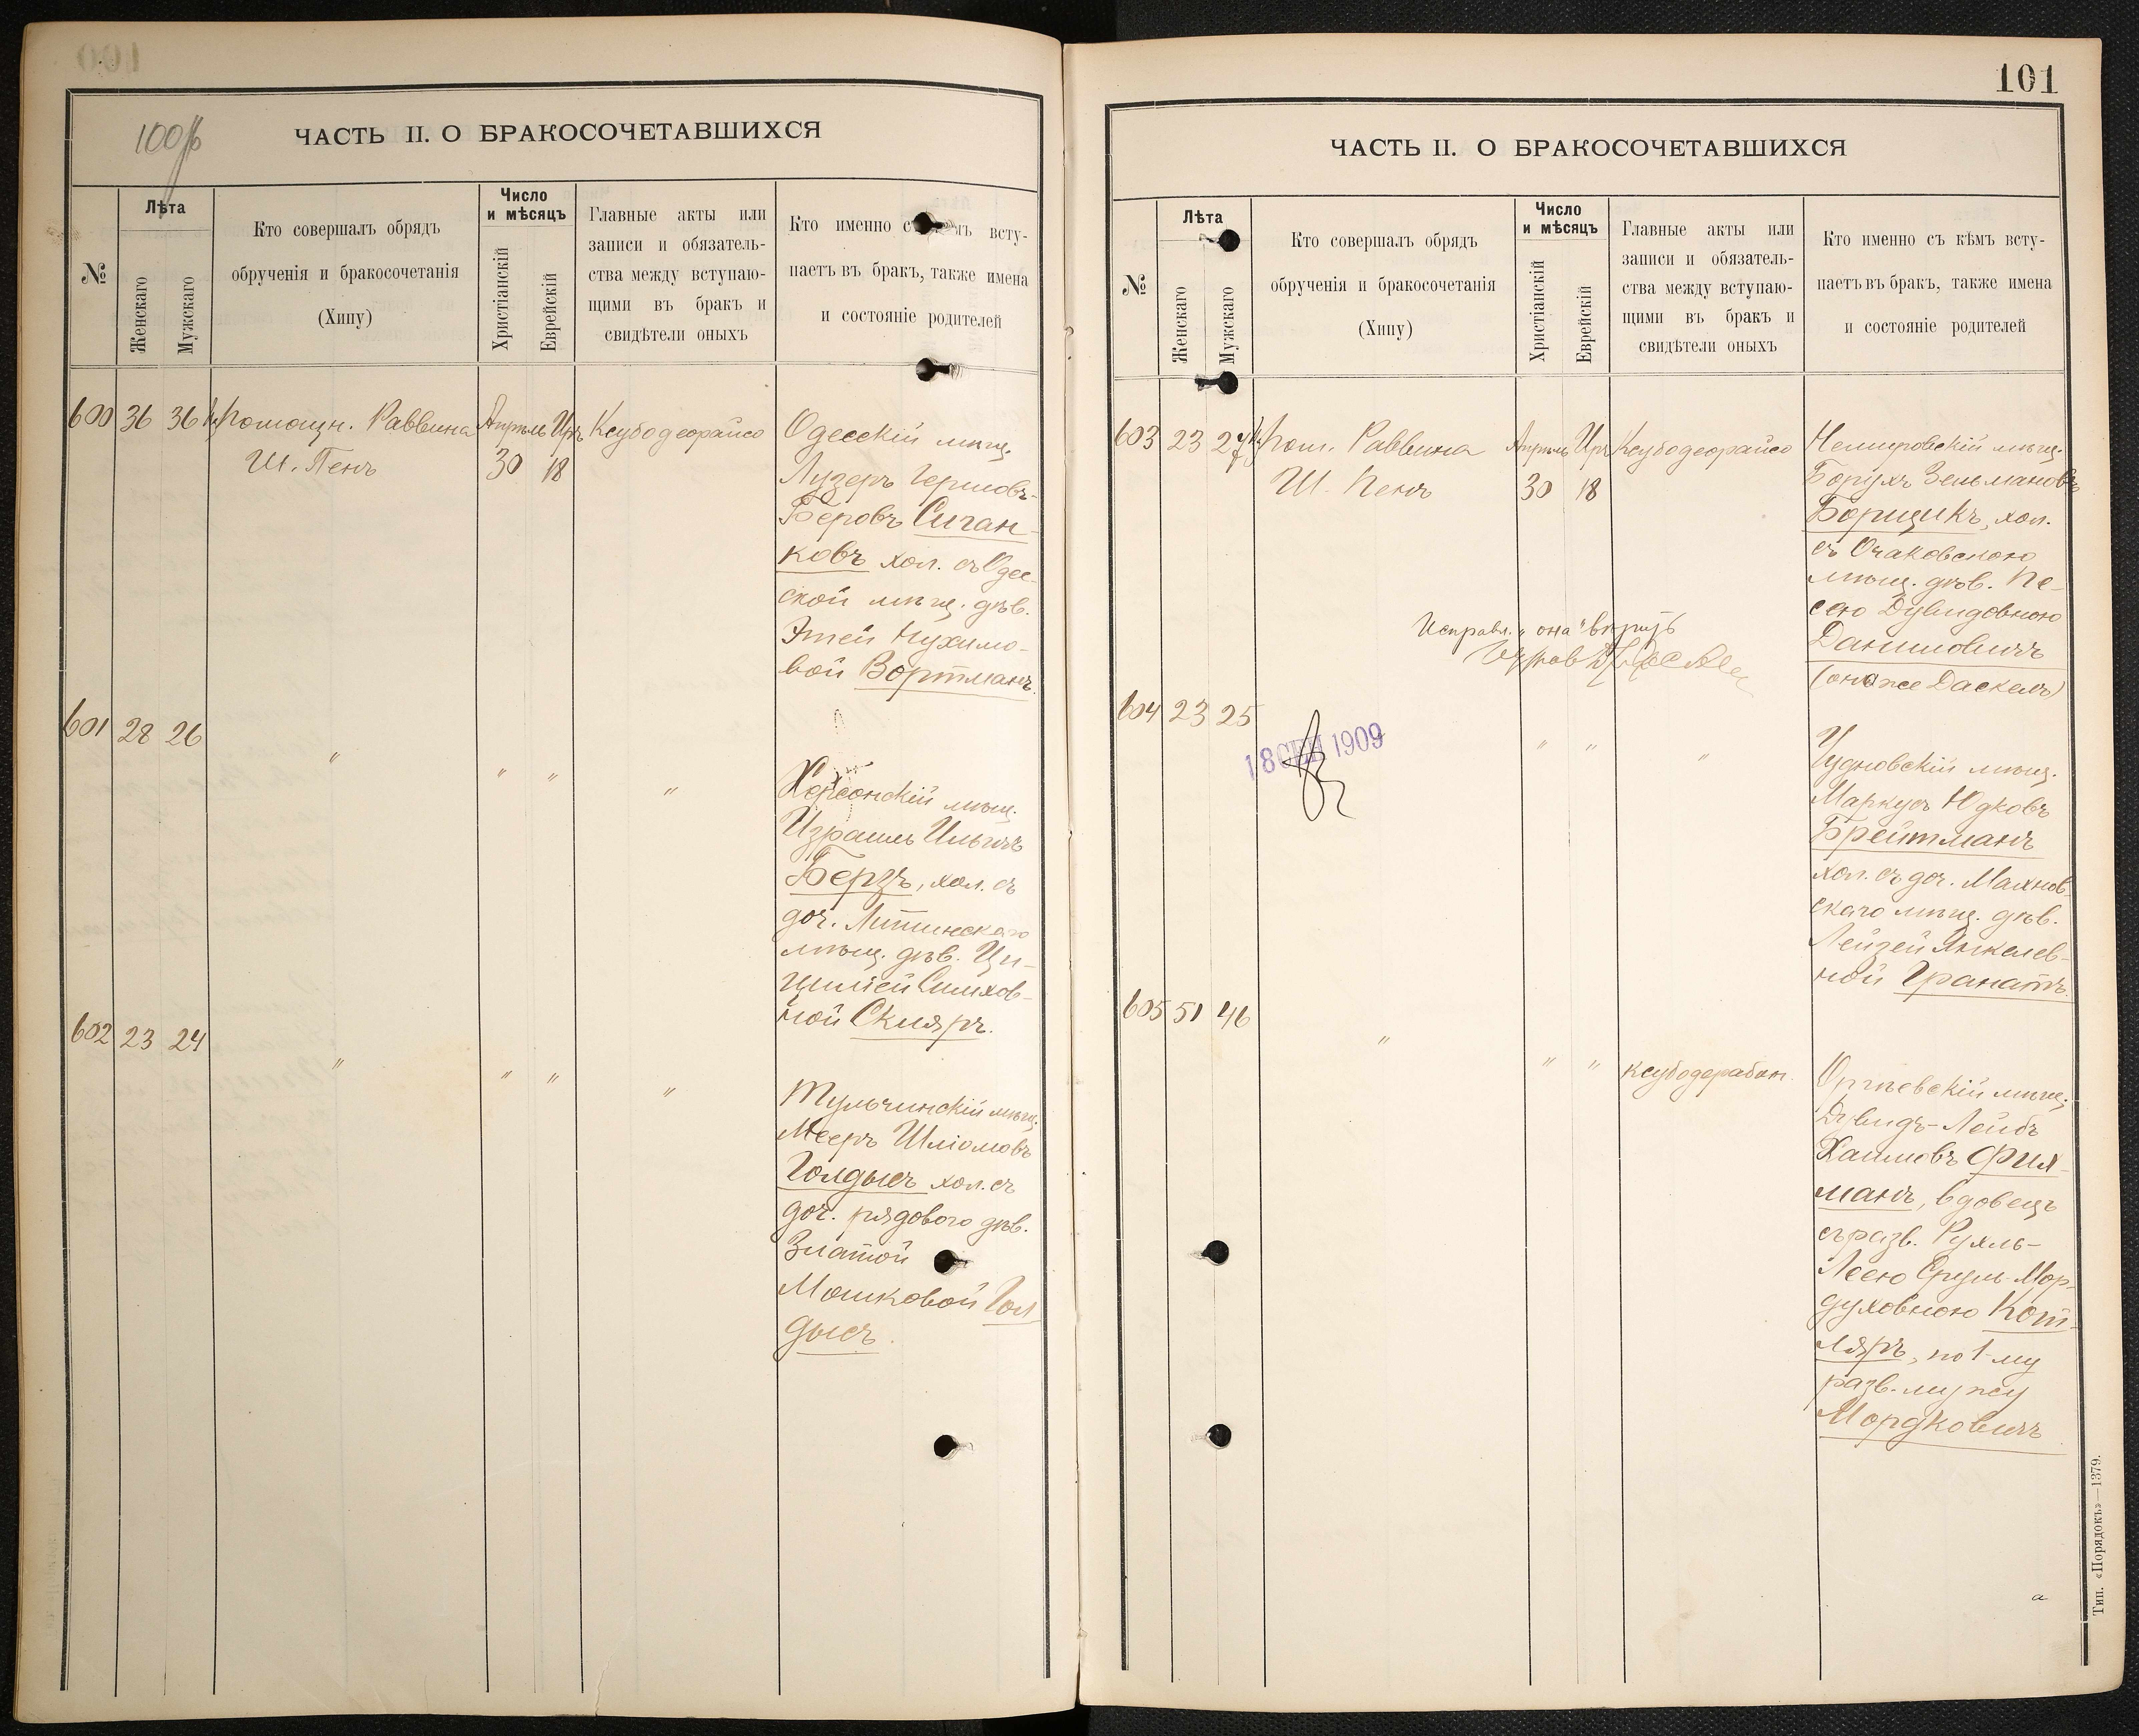 100
100 об
ЧАСТЬ II. О БРАКОСОЧЕТАВШИХСЯ
№
Лѣта
Женскаго
Мужскаго
Кто совершалъ обрядъ
обрученія и бракосочетанія
(Хипу)
Число
и мѣсяцъ
Христіанскій
Еврейскій
Главные акты или
записи и обязатель-
ства между вступаю-
щими въ бракъ и
свидѣтели оныхъ
Кто именно съ кѣмъ всту-
паетъ въ бракъ, также имена
и состояніе родителей
600 36 36 Помощн. Раввина Апрѣль Иръ Ксубодеорайсо
Ш. Пенъ 30 18
Одесскій мѣщ.
Лузеръ Гершовъ-
Беровъ Сиган-
ковъ хол. съ Одес-
ской мѣщ. дѣв.
Этей Нухимо-
вой Вортманъ.
601 28 26 " " " "
Херсонскій мѣщ.
Израиль Ильичъ
Берзъ, хол. съ
доч. Литинскаго
мѣщ. дѣв. Ци-
циліей Симхов-
ной Скляръ.
602 23 24 " " " "
Тульчинскій мѣщ.
Мееръ Шліомовъ
Голдысъ хол. съ
доч. рядового дѣв.
Златой
Мошковой Гол
дысъ.
101
ЧАСТЬ II. О БРАКОСОЧЕТАВШИХСЯ
№
Лѣта
Женскаго
Мужскаго
Кто совершалъ обрядъ
обрученія и бракосочетанія
(Хипу)
Число
и мѣсяцъ
Христіанскій
Еврейскій
Главные акты или
записи и обязатель-
ства между вступаю-
щими въ бракъ и
свидѣтели оныхъ
Кто именно съ кѣмъ всту-
паетъ въ бракъ, также имена
и состояніе родителей
603 23 27 Пом. Раввина Апрѣль Иръ Ксубодеорайсо
Ш. Пенъ 30 18
Немировскій мѣщ.
Борухъ Зельмановъ
Борщикъ, хол.
съ Очаковскою
мѣщ. дѣв. Пе-
сею Дувидовною
Даниловичъ
(она же Даскель)
Исправл. "она" вѣрить
604 23 25 " " "
18 СЕН 1909
Чудновскій мѣщ.
Маркусъ Юдковъ
Брейтманъ
хол. съ доч. Махнов-
скаго мѣщ. дѣв.
Лейзей Янкелев-
ной Гранатъ.
605 51 46 " " " ксубодерабон.
Оргѣевскій мѣщ.
Дувидъ-Лейбъ
Хаимовъ Фих
манъ, вдовецъ
съ разв. Рухль-
Леею Сруль-Мор-
духовною Кот-
ляръ, по 1-му
разв. мужу
Мордковичъ
Тип. «Порядокъ»—1379.